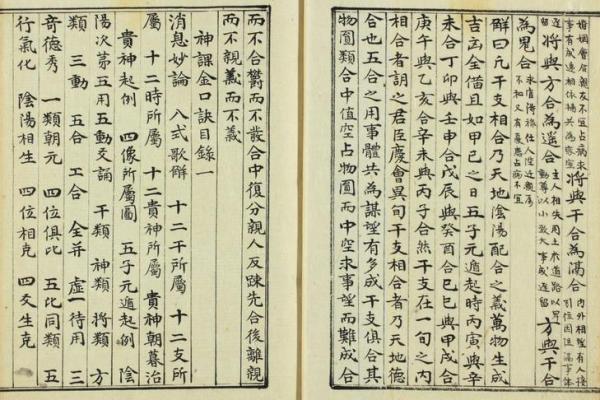 婚姻會合親友不宜占病求
將與干合為滿合
內外相理有人接
將與方合為遥合
方與干合
為鬼合
不和又有憂患占病不宜
解曰元干支相合乃天地陰陽配合之義萬物生成
吉凶全備且如甲己之日五子元遁起時丙寅與辛
未合丁卯與壬申合戊辰與癸酉合己巳與甲戌合
庚午與乙亥合辛未與丙子合然干支在一旬之內
相合者謂之君臣慶會異旬干支相合者乃天地德
合也五合之用事體共為謀望有多成干支俱合其
物圓類合中值空占物圓而中空求事望而難成合
而不合欝而不散合中復分親人反踈先合後離親
而不親義而不義
神課金口訣目錄一
消息妙論 八式歌解 十二干所屬 十二支所
屬 十二時所屬 十二貴神所屬 貴神朝暮治
貴神起例 四像所屬圖 五子元遁起例 陰
陽次第五用五動爻誦 干類 神類 將類 方
類 三動 五合 工合 全并 虛一待用 三
奇德秀 一類朝元 四位俱比 五比同類 五
行氣化 陰陽相生 四位相克 四爻生克